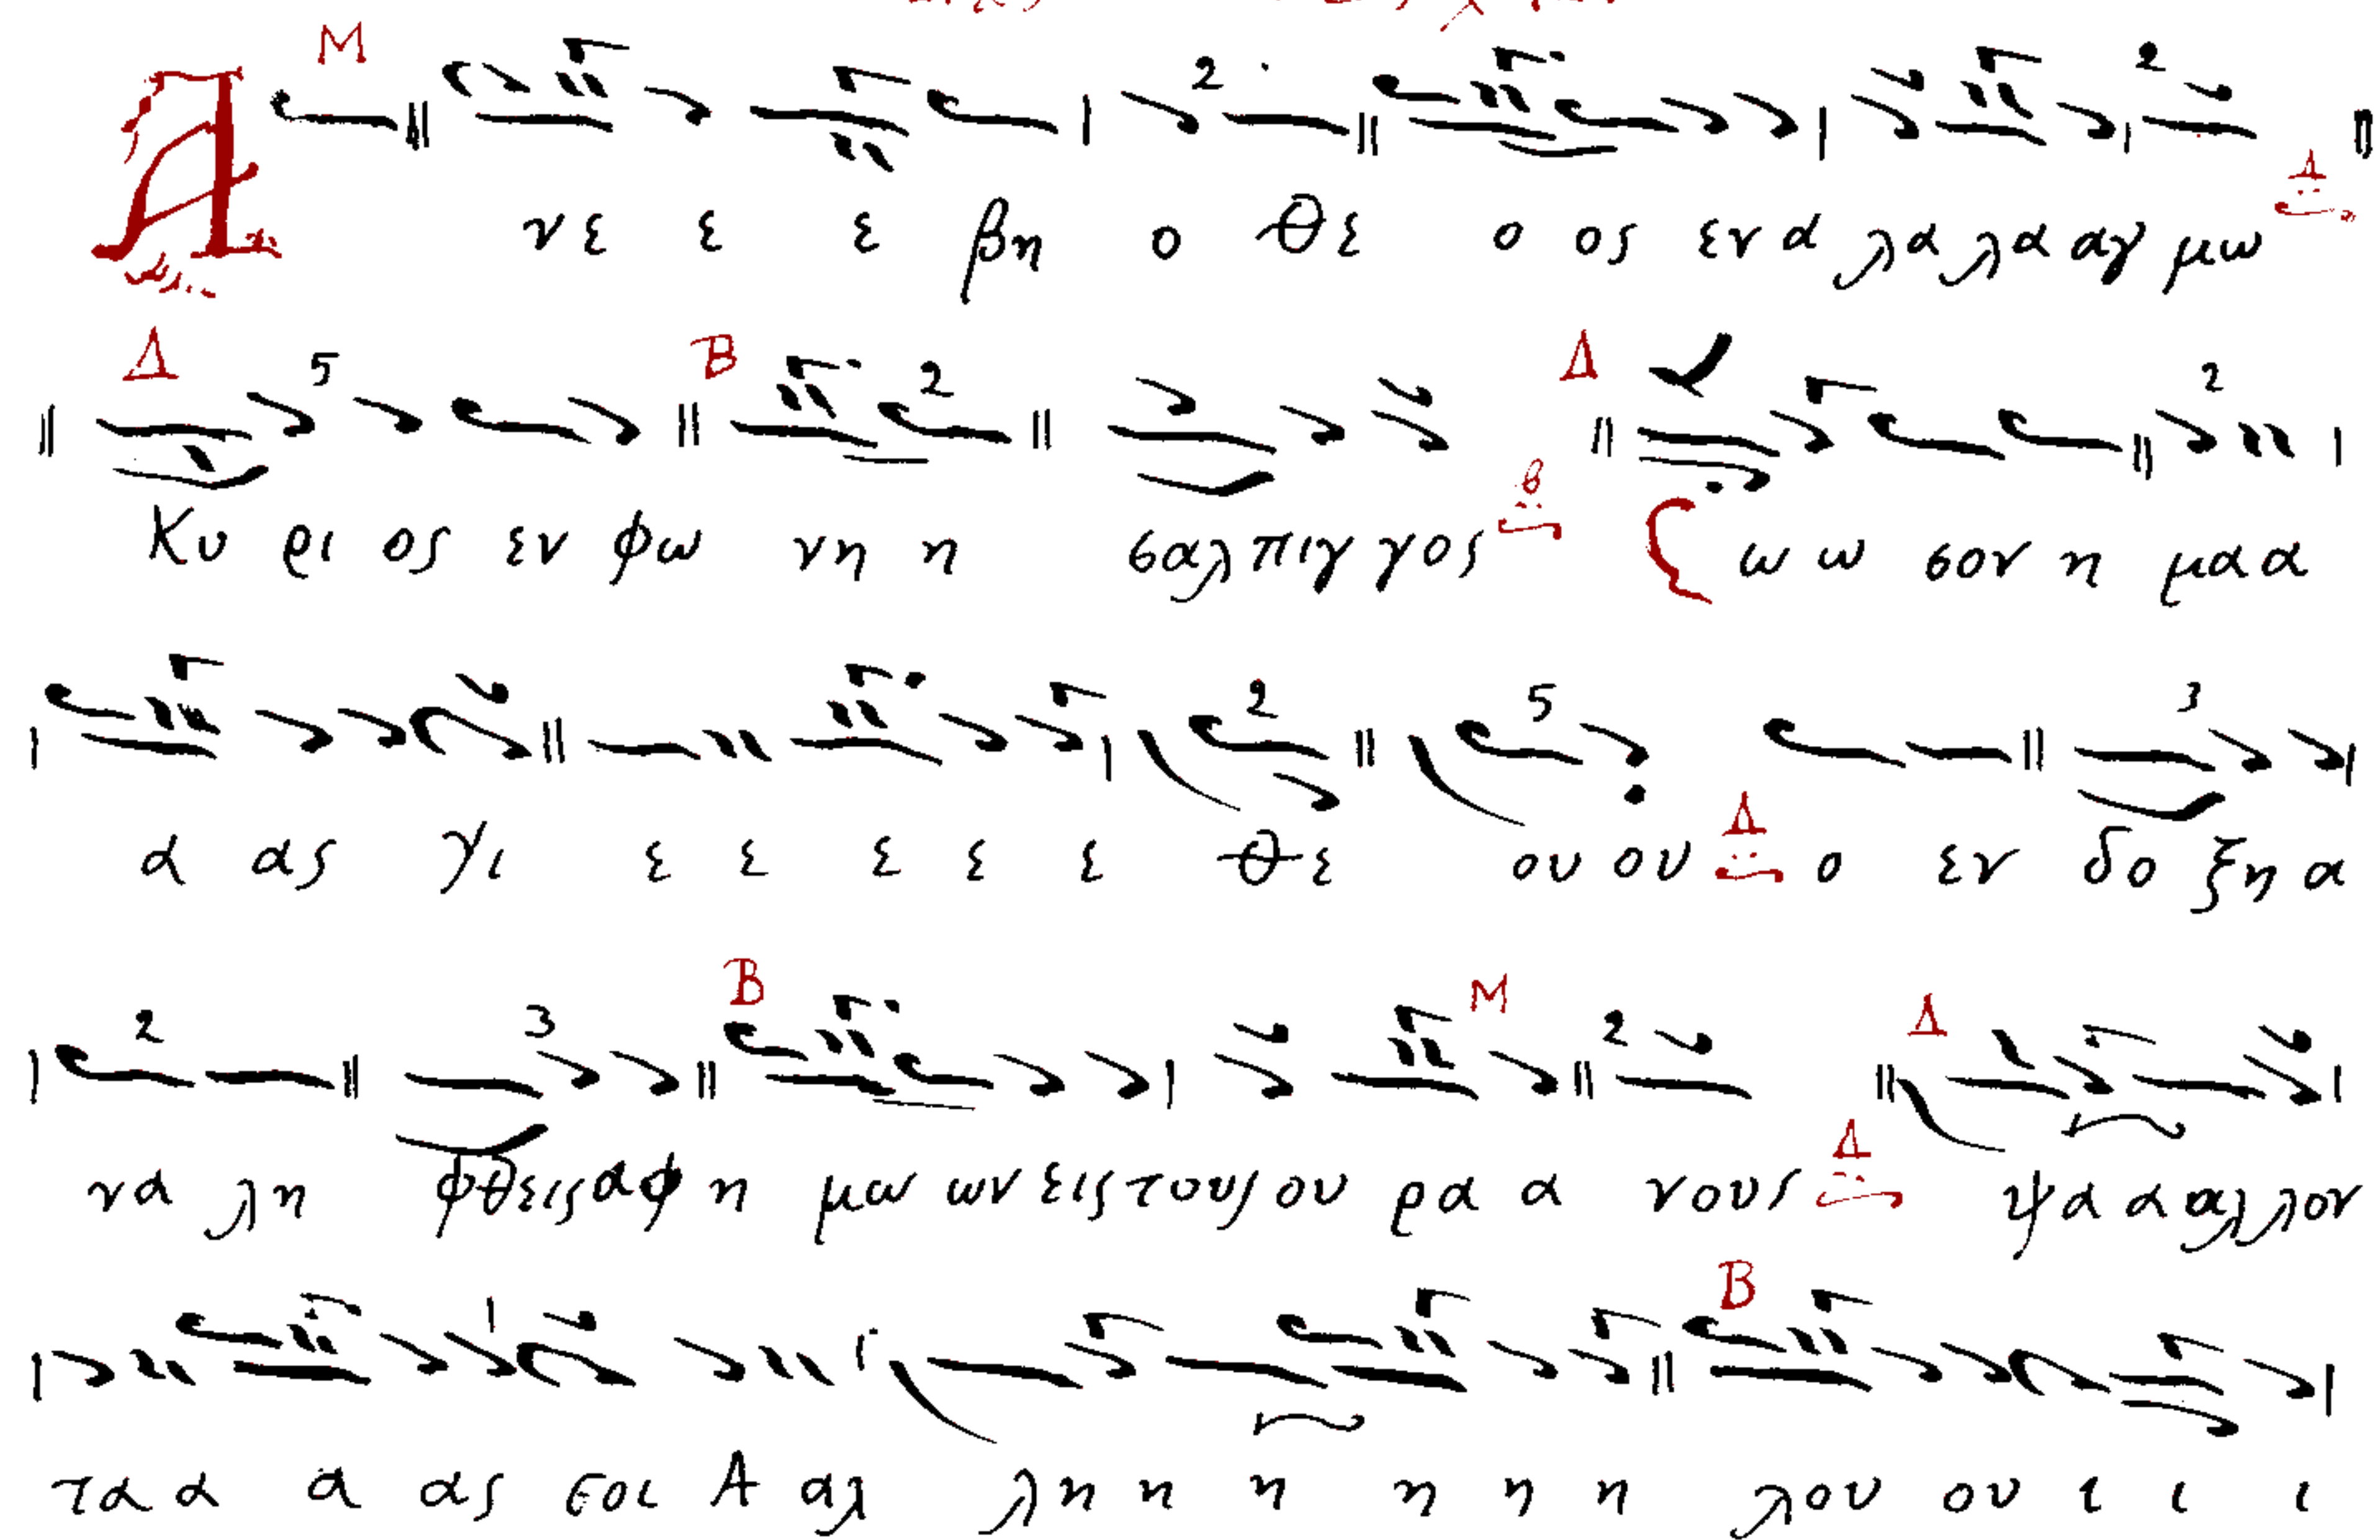 Α νε ε ε βη ο θε ο ος εν α λα λα αγ μω
Κυ ρι ος εν φω νη η σαλ πιγ γος Σω ω σον η μα α
α ας γι ε ε ε ε ε θε ου ου ο εν δο ξη α
να λη φθεις αφ η μω ων εις τους ου ρα α νους ψα α αλ λον
τα α α α ας σοι Α αλ λη η η η η η λου ου ι ι ι